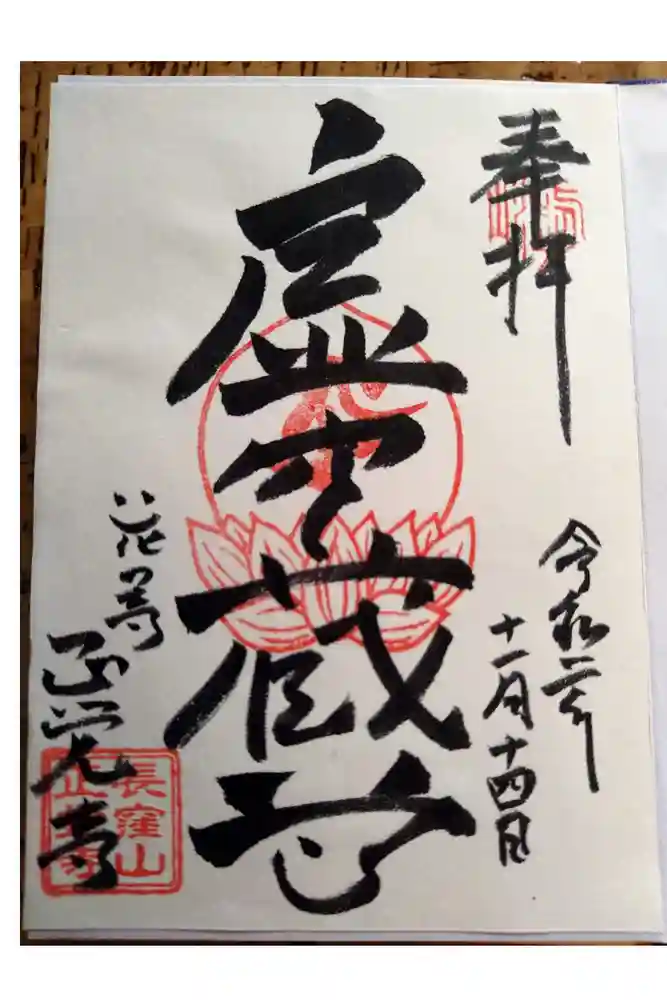 奉拝
令和二年
十一月十四日
虚空蔵
花の寺
正覚寺
長窪山
正覚寺